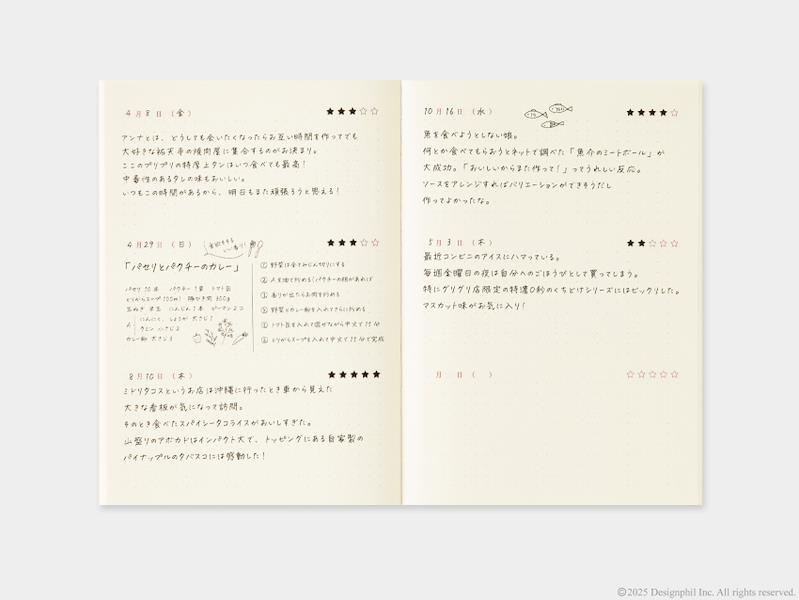 4月8日（金）
アンナとは、どうしても会いたくなったらお互い時間を作ってでも
大好きな祐天寺の焼肉屋に集合するのがお決まり。
ここのプリプリの特厚上タンはいつ食べても最高！
中毒性のあるタレの味もおいしい。
いつもこの時間があるから、明日もまた頑張ろうと思える！
4月29日（日）
「パセリとパクチーのカレー」
パセリ 10本 パクチー 1束 トマト缶
とりがらスープ 100ml 豚ひき肉 300g
玉ねぎ 半玉 にんじん 1本 ピーマン 2コ
にんにく、しょうが 大さじ1
クミン 小さじ2
カレー粉 大さじ3
① 野菜は全てみじん切りにする
② Aを油で炒める（パクチーの根があれば
③ 香りが出たらお肉を炒める
④ 野菜とカレー粉を入れてさらに炒める
⑤ トマト缶を入れて混ぜながら中火で15分
⑥ とりがらスープを入れて中火で15分で完成
8月10日（木）
ミドリタコスというお店は沖縄に行ったとき車から見えた
大きな看板が気になって訪問。
そのとき食べたスパイシータコライスがおいしすぎた。
山盛りのアボカドはインパクト大で、トッピングにある自家製の
パイナップルのタバスコには感動した！
10月16日（水）
魚を食べようとしない娘。
何とか食べてもらおうとネットで調べた「魚介のミートボール」が
大成功。「おいしいからまた作って！」ってうれしい反応。
ソースをアレンジすればバリエーションができそうだし
作ってよかったな。
5月3日（木）
最近コンビニのアイスにハマっている。
毎週金曜日の夜は自分へのごほうびとして買ってしまう。
特にグリグリ店限定の特濃0秒のくちどけシリーズにはビックリした。
マスカット味がお気に入り！
月 日（ ）
©2025 Designphil Inc. All rights reserved.